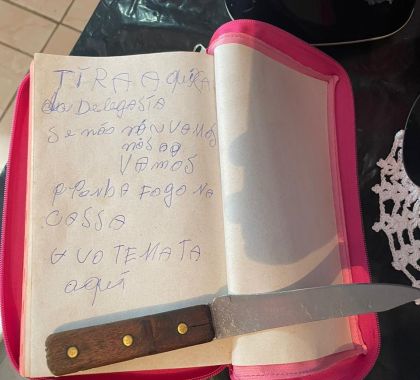 TIRA A queRA
da DelegASIA
Se não NÃN VAMOS
nós aq
VAMOS
P Panha FOGO NA
CASSA
e VO TEMATA
aqui